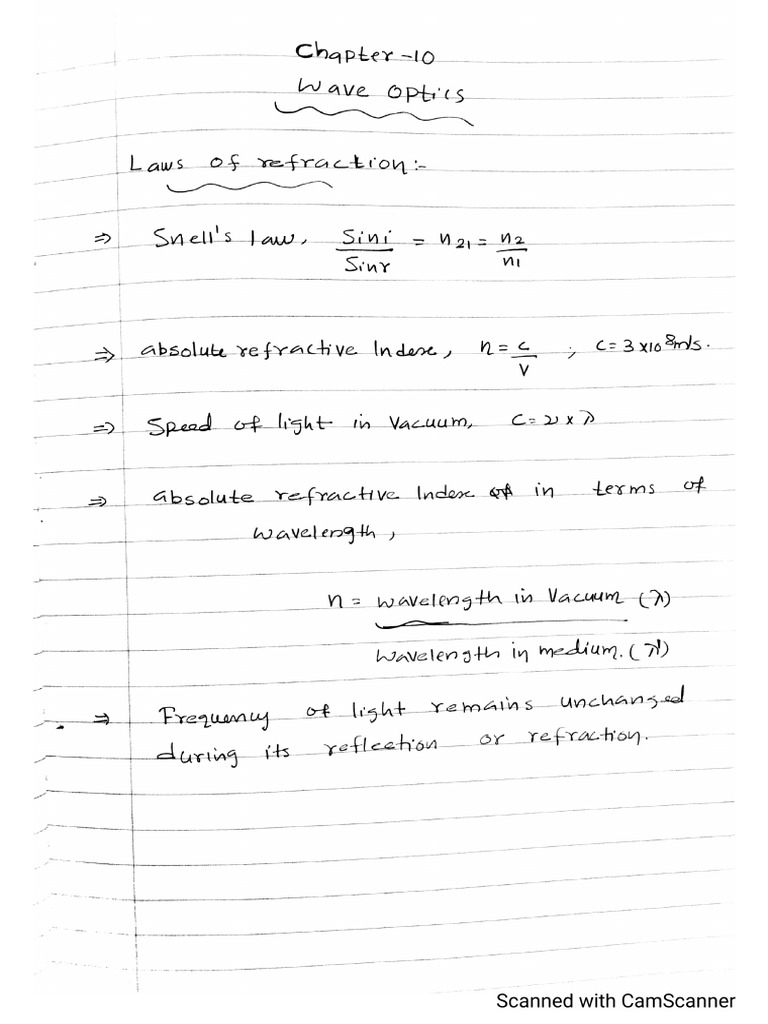 Chapter-10
Wave Optics
Laws of refraction:-
⇒ Snell's law, Sini/Sinr = n21 = n2/n1
⇒ absolute refractive Index, n = c/v ; C = 3×10^8 m/s.
⇒ Speed of light in Vacuum, C = ν × λ
⇒ absolute refractive Index of in terms of
wavelength,
n = wavelength in Vacuum (λ)
wavelength in medium. (λ')
⇒ Frequency of light remains unchanged
during its reflection or refraction.
Scanned with CamScanner